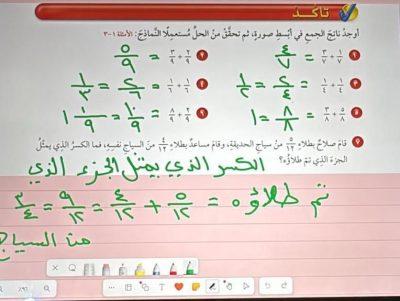 تأكد
أوجد ناتج الجمع في أبسط صورة، ثم تحقق من الحل مستعملًا النماذج: الأمثلة ١-٣
١ ١/٧ + ٣/٧ = ٤/٧
٢ ٢/٩ + ٣/٩ = ٥/٩
٣ ١/٤ + ١/٤ = ٢/٤ = ١/٢
٤ ١/٦ + ١/٦ = ٢/٦ = ١/٣
٥ ٥/٨ + ٣/٨ = ٨/٨ = ١
٦ ٢/٩ + ٨/٩ = ١٠/٩ = ١ ١/٩
٧ قام صلاح بطلاء ٥/١٢ من سياج الحديقة، وقام مساعد بطلاء ٤/١٢ من السياج نفسه، فما الكسر الذي يمثل
الجزء الذي تم طلاؤه؟
الكسر الذي يمثل الجزء الذي
تم طلاؤه = ٥/١٢ + ٤/١٢ = ٩/١٢ = ٣/٤
من السياج